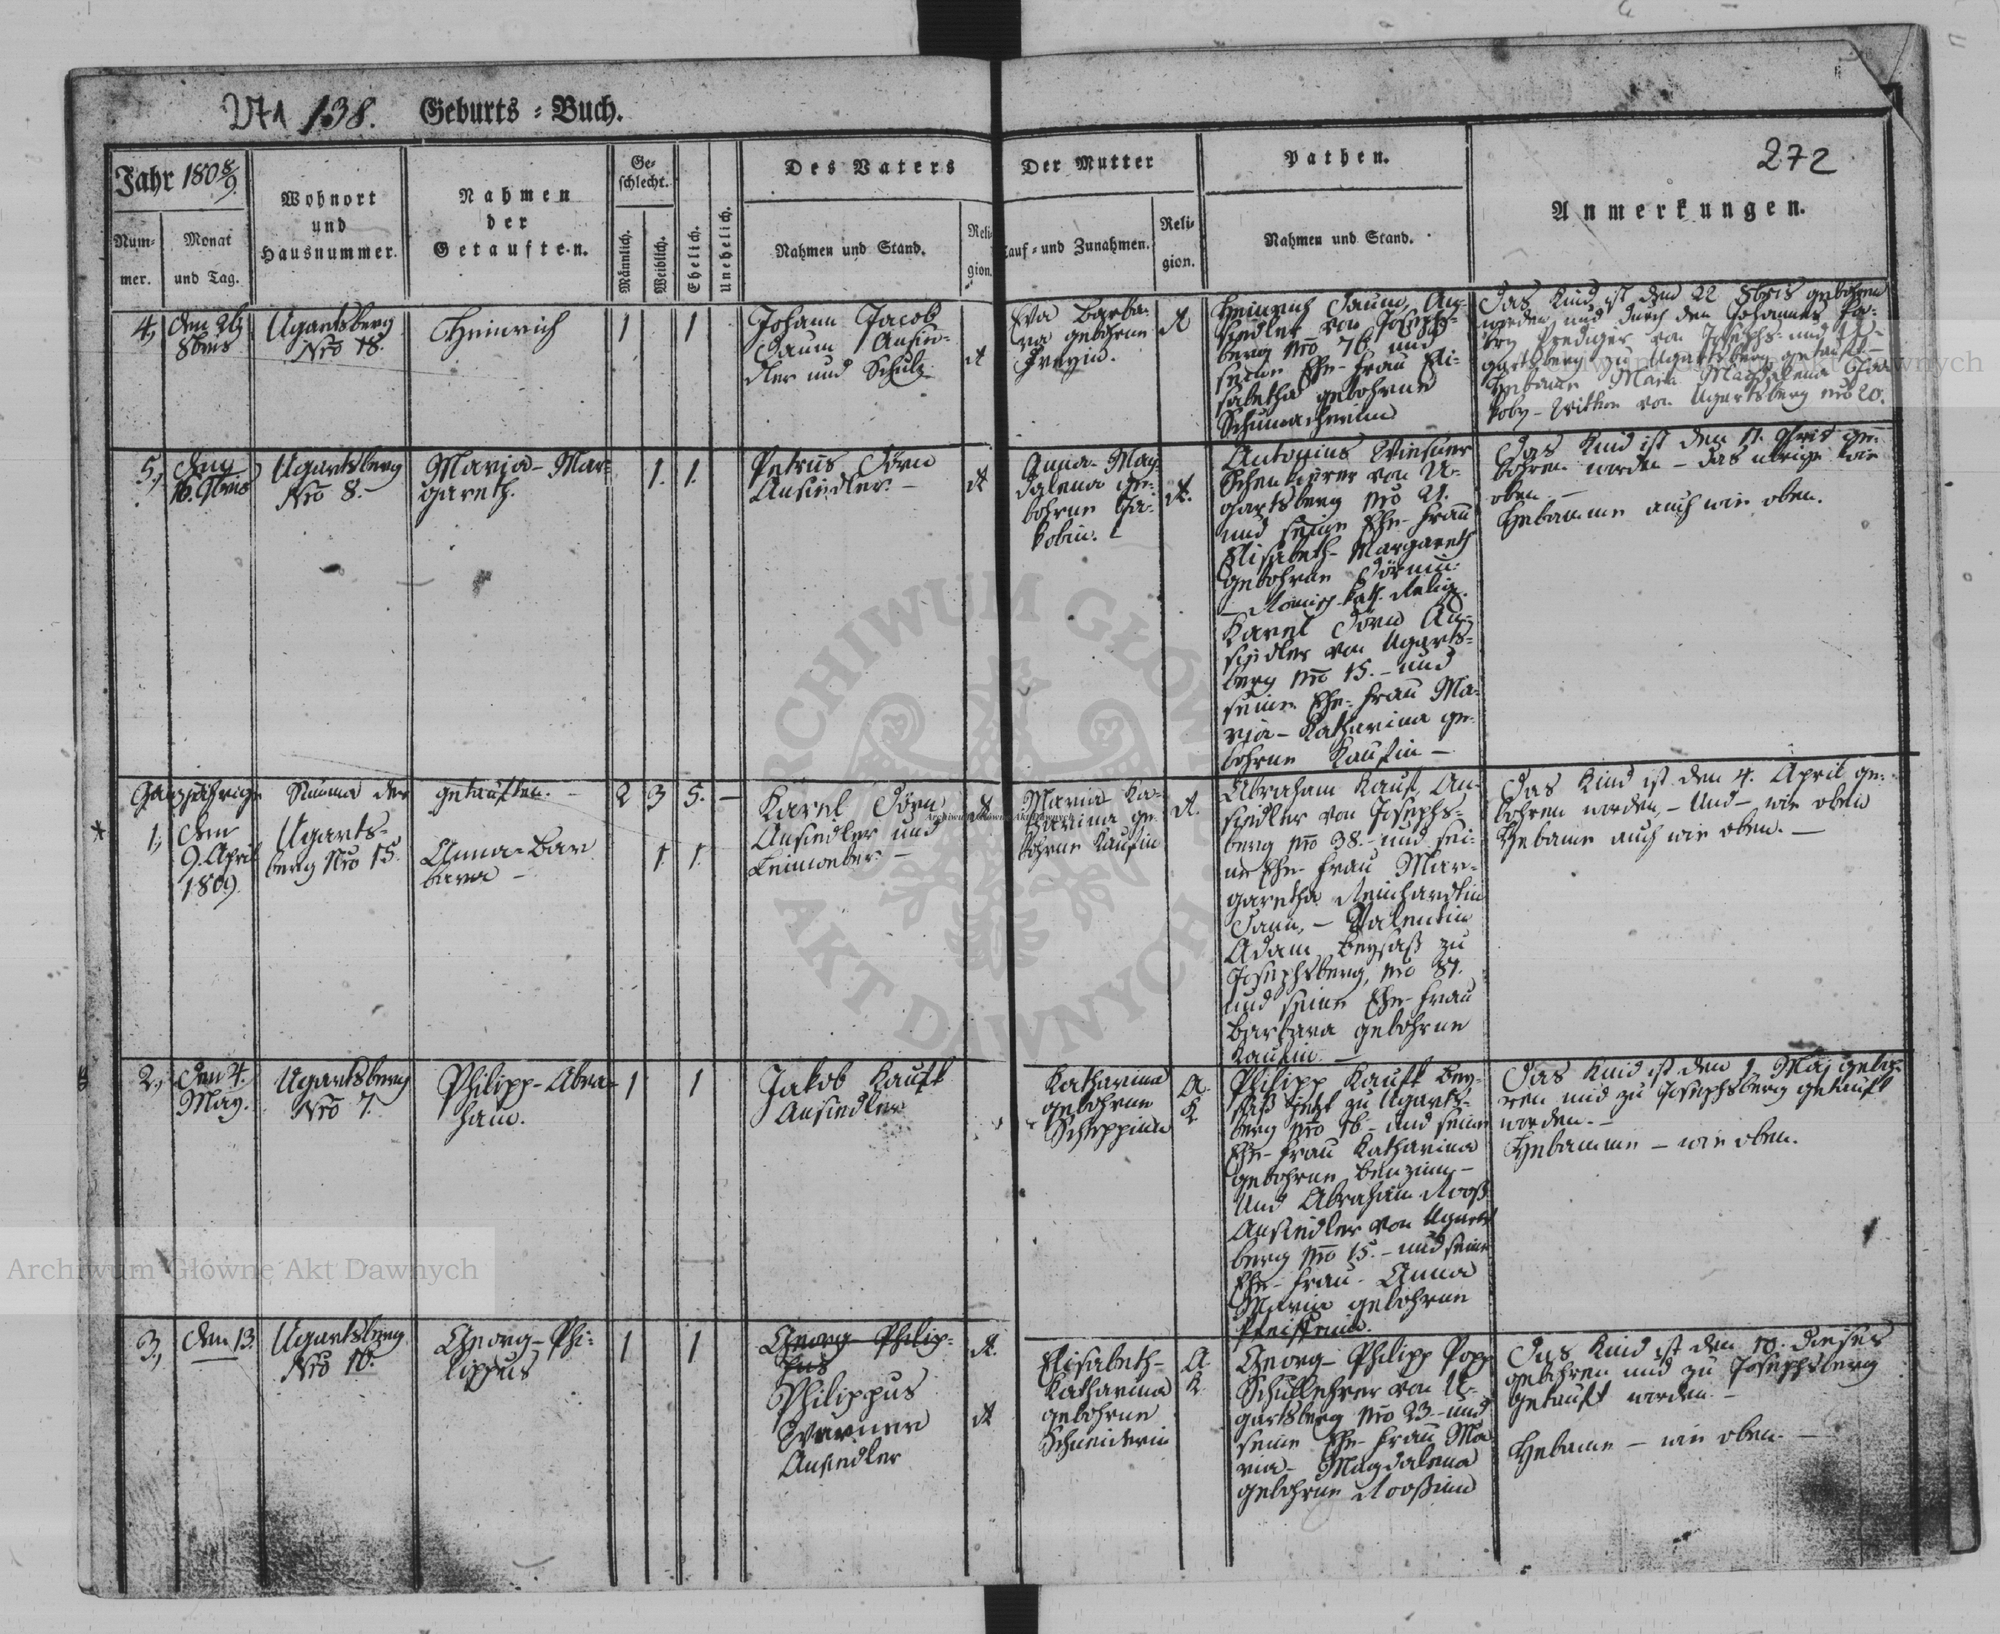 271 138. Geburts = Buch.
272
Jahr 1808/9.
Num-
mer.
Monat
und Tag.
Wohnort
und
Hausnummer.
Nahmen
der
Getauften.
Ge-
schlecht.
Männlich.
Weiblich.
Ehelich.
Unehelich.
Des Vaters
Nahmen und Stand.
Reli-
gion.
Der Mutter
Tauf = und Zunahmen.
Reli-
gion.
Pathen.
Nahmen und Stand.
Anmerkungen.
4,
8bris
Ugartsberg
Nro 18.
Heinrich
1
1
Johann Jacob
Daum Ansie-
dler und Schulz
R
Eva Barba-
ra gebohrne
R
Heinrich Daum, An-
siedler von Josephs-
berg Nro 76 und
seine Ehe-Frau Eli-
sabetha gebohrne
Schumacherinn
Das Kind ist den 22 8bris gebohren
worden und durch den Johannes
Prediger von Josephs- und U-
gartsberg zu Ugartsberg getauft.
Hebamme Maria Magdalena
Wittwe von Ugartsberg Nro 20.
5,
den
16. 9bris
Ugartsberg
Nro 8.
Maria-Mar-
gareth.
1.
1.
Petrus Dörn
Ansiedler. –
R
Anna-Mag-
dalena ge-
bohrne Ja-
kobin.
R.
Antonius Wiesner
von U-
gartsberg Nro 21.
und seine Ehe-Frau
Elisabeth-Margareth
gebohrne
– Römisch kath. Relig.
Karel Dörn An-
siedler von Ugarts-
berg Nro 15. – und
seine Ehe-Frau Ma-
ria-Katharina ge-
bohrne Kaufin –
Das Kind ist den 11. 9bris ge-
bohren worden – das übrige wie
oben. –
Hebamme auch wie oben.
Ganzjährige Summa der getauften. – 2 3 5. –
1,
den
9. April
1809.
Ugarts-
berg Nro 15.
Anna-Bar-
bara –
1.
1.
Karel Dörn
Ansiedler und
Leinweber. –
R
Maria Ka-
tharina ge-
bohrne Kaufin
R.
Abraham Kauf, An-
siedler von Josephs-
berg Nro 38. – und sei-
ne Ehe-Frau Mar-
garetha Reinhardtin
Dann, – Valentin
Adam, Beysaß zu
Josephsberg, Nro 81.
und seine Ehe-Frau
Barbara gebohrne
Kaufin. –
Das Kind ist den 4. April ge-
bohren worden, – Und – wie oben
Hebame auch wie oben. –
2,
den 4.
May.
Ugartsberg
Nro 7.
Philipp-Abra-
ham.
1
1
Jakob Kauft
Ansiedler
Katharina
gebohrne
Scheppinn
A.
K
Philipp Kauft Bey-
saß jetzt zu Ugarts-
berg Nro 16 – und seine
Ehe-Frau Katharina
gebohrne Benzinn –
Und Abraham Rooß
Ansiedler von Ugarts-
berg Nro 15. – und seine
Ehe-Frau – Anna
Maria gebohrne
Das Kind ist den 1. Maj geboh-
ren und zu Josephsberg getauft
worden. –
Hebamme – wie oben.
3,
den 13.
Ugartsberg
Nro 16.
Georg-Phi-
lippus
1
1
Georg Philip-
pus
Philippus
Wanner
Ansiedler
R.
R
Elisabeth-
Katharina
gebohrne
Schneiderin
A.
K.
Georg-Philipp Popp
Schullehrer von U-
gartsberg Nro 23 – und
seine Ehe-Frau Ma-
ria-Magdalena
gebohrne Rooßinn
Das Kind ist den 10. dieses
gebohren und zu Josephsberg
getauft worden. –
Hebame – wie oben. –
ARCHIWUM GŁÓWNE
AKT DAWNYCH
Archiwum Główne Akt Dawnych